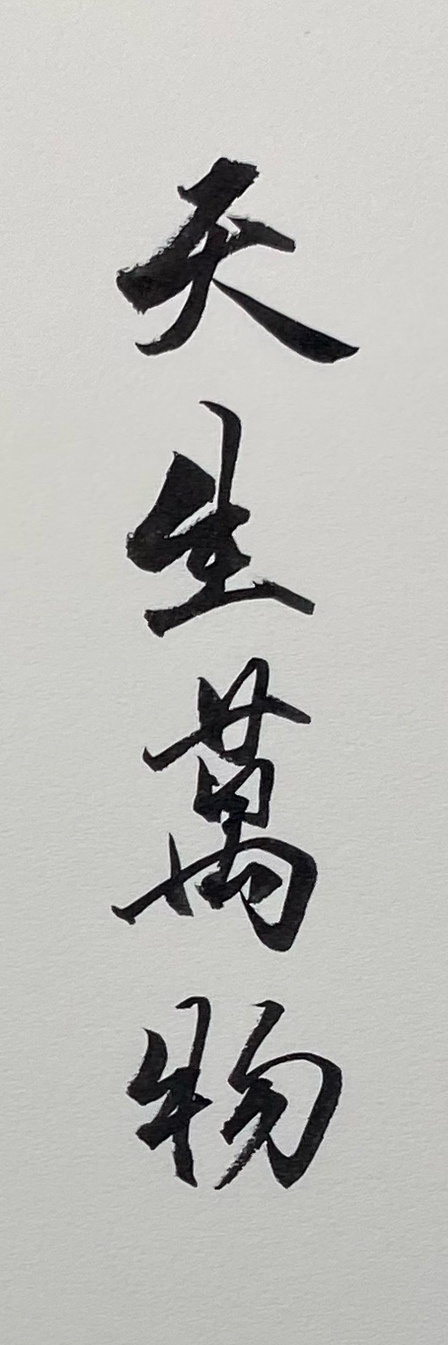 天生萬物